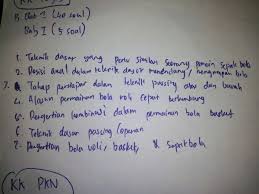 B. Chat 1 (40 soal)
Bab I (5 soal)
1. Teknik dasar yang perlu seorang pemain sepak bola
2. Posisi awal dalam teknik dasar menendang / bola
3. Tahap persiapan dalam teknik passing atas dan bawah
4. Alasan permainan bola voli cepat berkembang
5. Pengertian kombinasi dalam permainan bola basket
6. Teknik dasar passing (operan
7. Pengertian bola voli, basket, & sepak bola
KK PKN